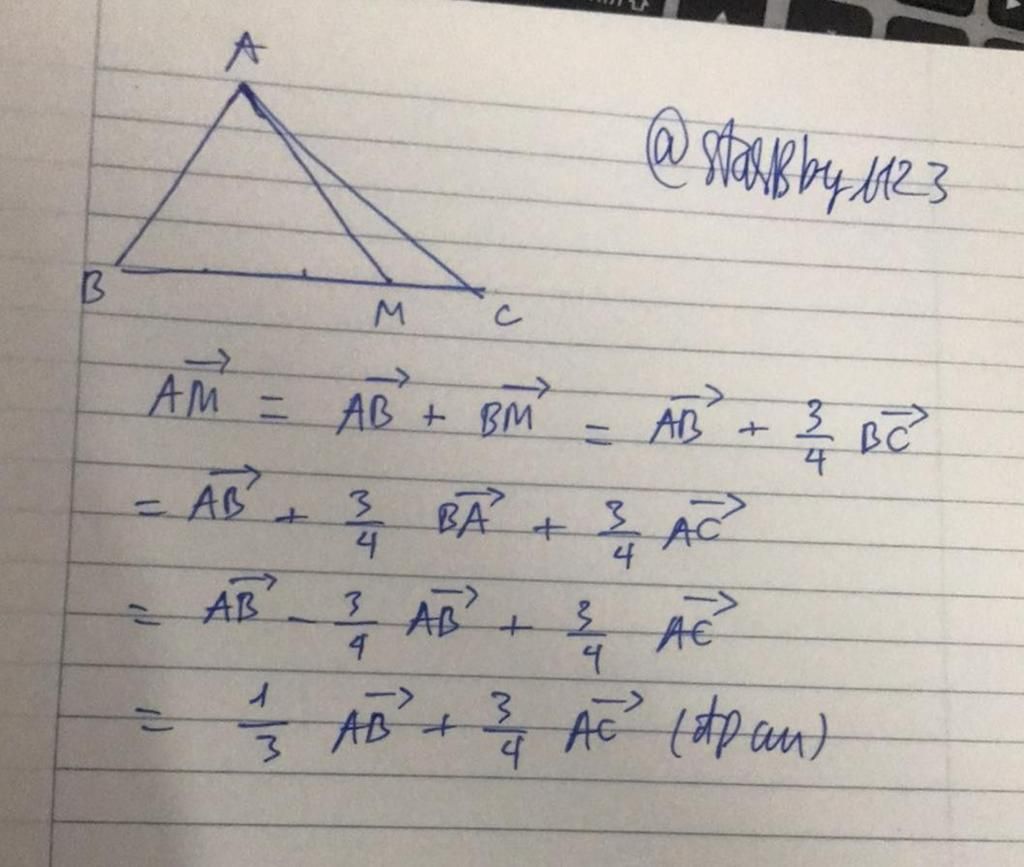 A
@starBby1123
B
M
C
\overrightarrow{AM} = \overrightarrow{AB} + \overrightarrow{BM} = \overrightarrow{AB} + \frac{3}{4} \overrightarrow{BC}
= \overrightarrow{AB} + \frac{3}{4} \overrightarrow{BA} + \frac{3}{4} \overrightarrow{AC}
= \overrightarrow{AB} - \frac{3}{4} \overrightarrow{AB} + \frac{3}{4} \overrightarrow{AC}
= \frac{1}{3} \overrightarrow{AB} + \frac{3}{4} \overrightarrow{AC} (đpcm)